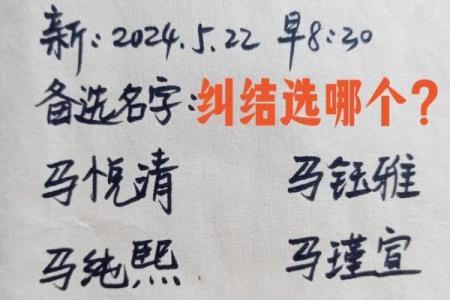 新：2024.5.22 早8:30
备选名字：纠结选哪个？
马悦清 马钰雅
马纯熙 马瑾宣